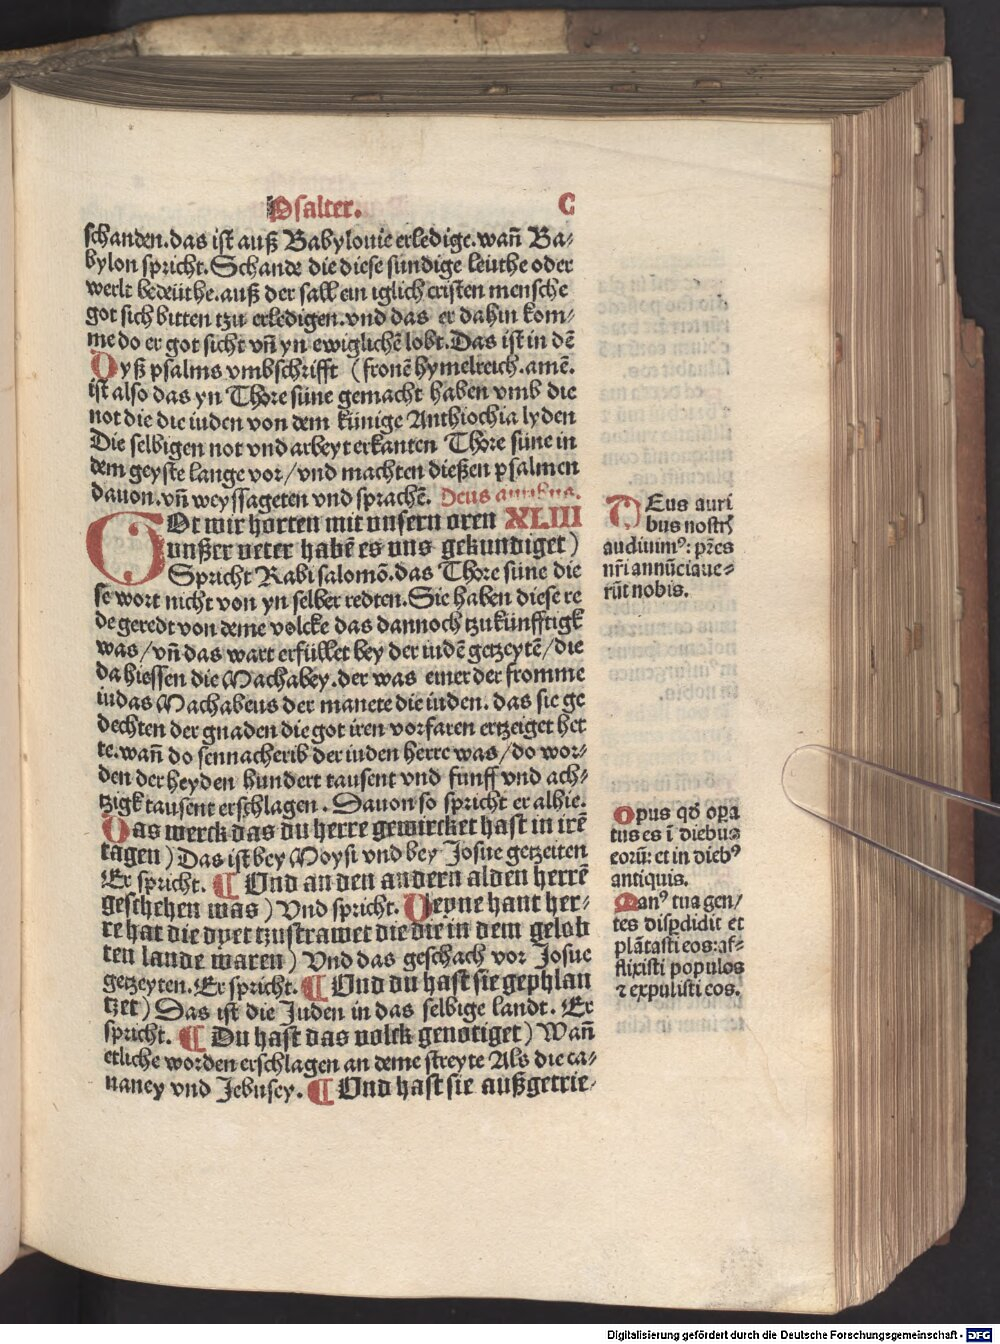 Psalter. C
schanden.das ist auß Babylonie erledige.wañ Ba⸗
bylon spricht.Schande die diese sundige leuthe oder
werlt bedeuthe.auß der sall ein iglich cristen mensche
got sich bitten tzu erledigen.vnd das er dahin kom⸗
me do er got sicht vñ yn ewiglichē lobt.Das ist in dē
Dyß psalms vmbschrifft (fronē hymelreich.amē.
ist also das yn Chore süne gemacht haben vmb die
not die die iuden von dem künige Anthiochia lyden
Die selbigen not vnd arbeyt erkanten Chore süne in
dem geyste lange vor/vnd machten dießen psalmen
dauon.vñ weyssageten vnd sprachē. Deus auribus.
GOt wir horten mit unsern oren XLIII
unßer veter habē es uns gekundiget)
Spricht Rabi salomō.das Chore süne die
se wort nicht von yn selber redten.Sie haben diese re
de geredt von deme volcke das dannoch tzukünfftigk
was/vñ das wart erfüllet bey der iudē getzeytē/die
da hiessen die Machabey.der was einer der fromme
iudas Machabeus der manete die iuden. das sie ge
dechten der gnaden die got iren vorfaren ertzeiget het
te.wañ do sennacherib der iuden herre was/do wor⸗
den der heyden hundert tausent vnd funff vnd ach⸗
tzigk tausent erschlagen. Dauon so spricht er alhie.
Das werck das du herre gewircket hast in irē
tagen) Das ist bey Moysi vnd bey Josue getzeiten
Er spricht. ¶ Und an den andern alden herrē
geschehen was) Vnd spricht. Deyne hant her⸗
re hat die dyet tzustrawet die die in dem gelob
ten lande waren) Vnd das geschach vor Josue
getzeyten.Er spricht. ¶ Und du hast sie gephlan
tzet) Das ist die Juden in das selbige landt. Er
spricht. ¶ Du hast das volck genotiget) Wañ
etliche worden erschlagen an deme streyte Als die ca⸗
naney vnd Jebusey. ¶ Und hast sie außgetrie⸗
DEus auri
bus nostrꝭ
audiuimꝰ: pr̄es
nr̄i annūciaue⸗
rūt nobis.
Opus qd̓ oꝑa
tus es ī diebus
eorū: et in diebꝰ
antiquis.
Manꝰ tua gen/
tes disꝑdidit et
plātasti eos:af⸗
flixisti populos
⁊ expulisti eos.
Digitalisierung gefördert durch die Deutsche Forschungsgemeinschaft - DFG